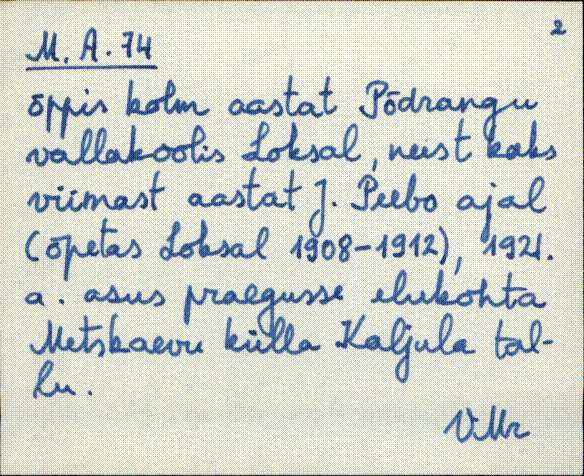 2
M. A. 74
õppis kolm aastat Põdrangu
vallakoolis Loksal, neist kaks
viimast aastat J. Peebo ajal
(õpetas Loksal 1908-1912), 1921.
a. asus praegusse elukohta
Metskaevu külla Kaljula tal-
lu.
V.Mr